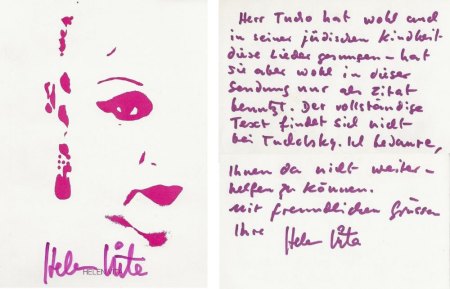 Helen Vita
HELEN VITA
Herr Tucho hat wohl auch
in seiner jüdischen Kindheit
diese Lieder gesungen – hat
sie aber wohl in dieser
Sendung nur als Zitat
benutzt. Der vollständige
Text findet sich nicht
bei Tucholsky. Ich bedaure,
Ihnen da nicht weiter-
helfen zu können.
Mit freundlichen Grüssen
Ihre Helen Vita